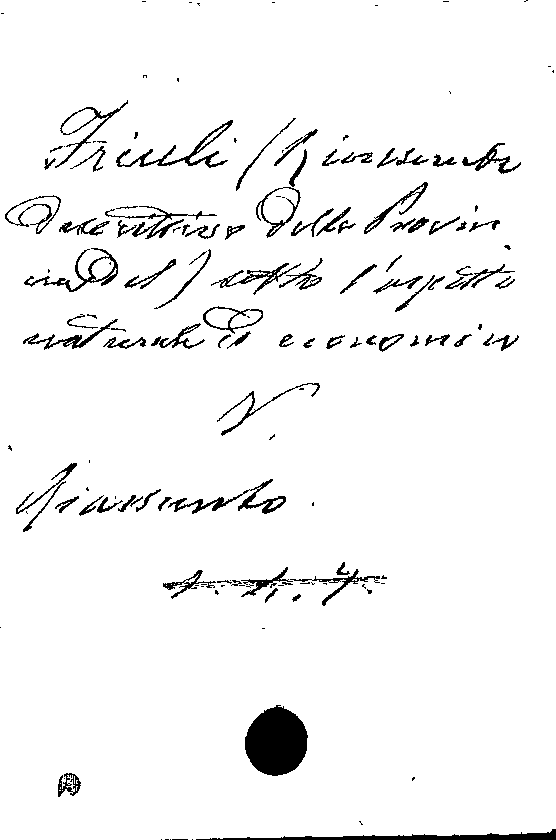 Friuli (Riassunto
descrittivo della Provin
cia del) sotto l'aspetto
naturale ed economico
V.
Riassunto.
1. 4. 4.